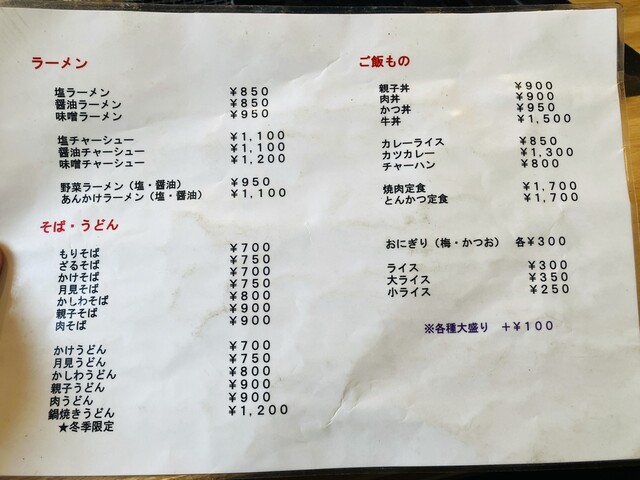 ラーメン
塩ラーメン ￥850
醤油ラーメン ￥850
味噌ラーメン ￥950
塩チャーシュー ￥1,100
醤油チャーシュー ￥1,100
味噌チャーシュー ￥1,200
野菜ラーメン（塩・醤油） ￥950
あんかけラーメン（塩・醤油） ￥1,100
そば・うどん
もりそば ￥700
ざるそば ￥750
かけそば ￥700
月見そば ￥750
かしわそば ￥800
親子そば ￥900
肉そば ￥900
かけうどん ￥700
月見うどん ￥750
かしわうどん ￥800
親子うどん ￥900
肉うどん ￥900
鍋焼きうどん ￥1,200
★冬季限定
ご飯もの
親子丼 ￥900
肉丼 ￥900
かつ丼 ￥950
牛丼 ￥1,500
カレーライス ￥850
カツカレー ￥1,300
チャーハン ￥800
焼肉定食 ￥1,700
とんかつ定食 ￥1,700
おにぎり（梅・かつお） 各￥300
ライス ￥300
大ライス ￥350
小ライス ￥250
※各種大盛り ＋￥100